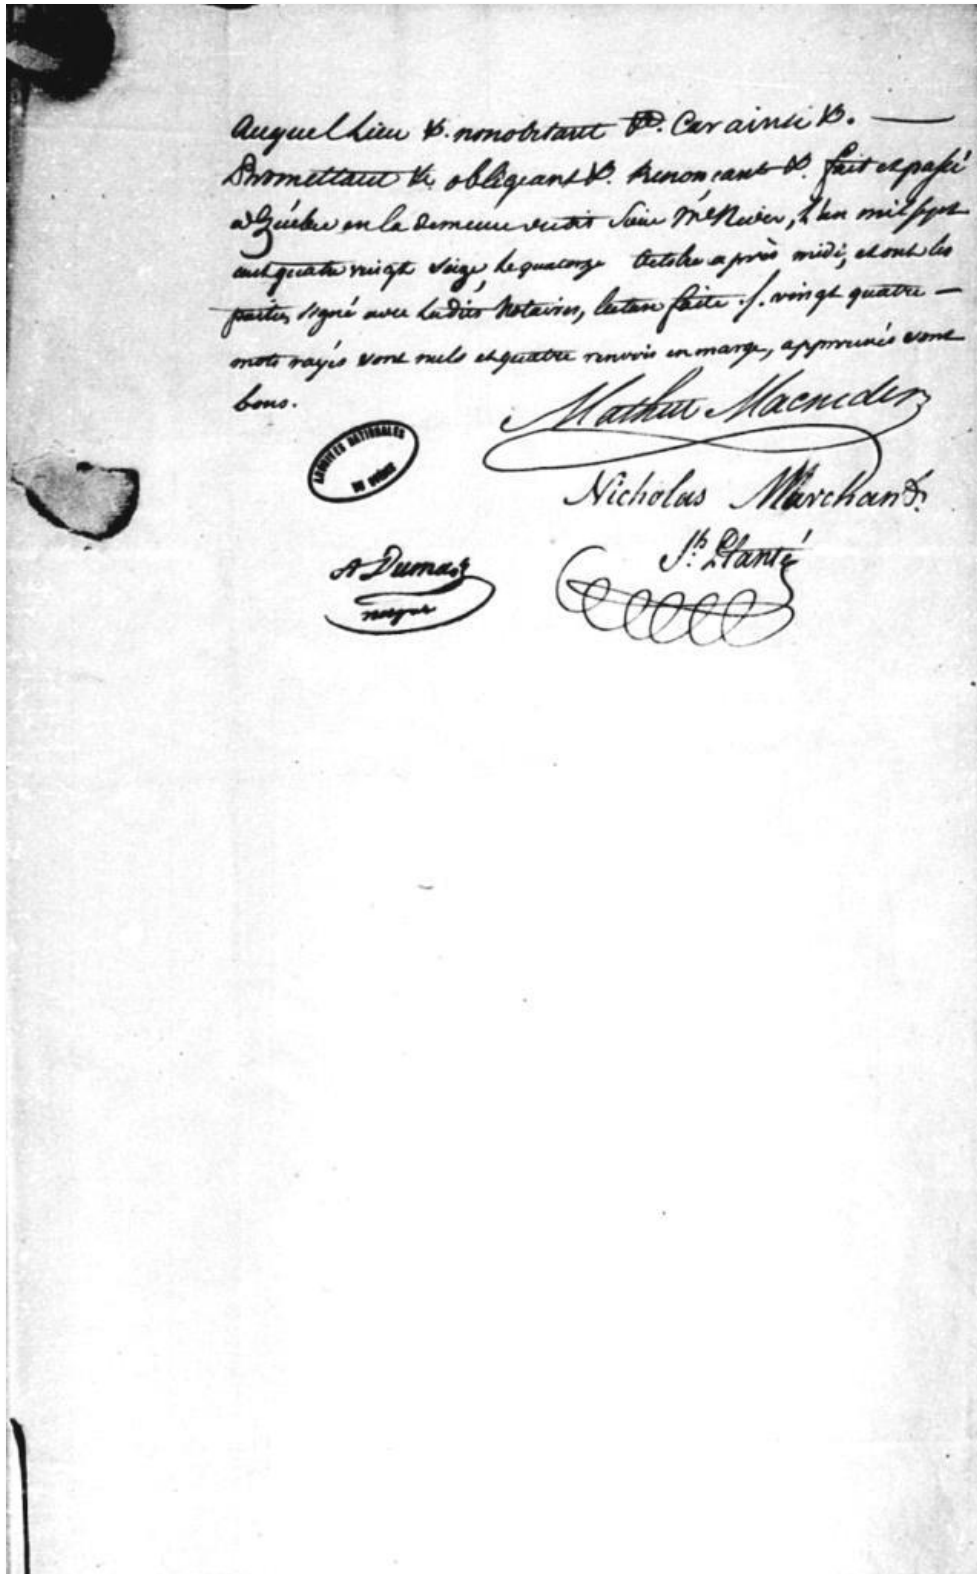 Auquel Lieu &c. nonobstant &c. Car ainsi &c. —
Promettant &c. obligeant &c. Renonçant &c. fait et passé
à Québec en la demeure dudit Sieur McNider, L'an mil sept
cent quatre vingt seize, le quatorze Octobre après midi, et ont les
parties signé avec Lesdits Notaires, lecture faite ./. vingt quatre —
mots rayés sont nuls et quatre renvois en marge, approuvés sont
bons.
Mathew Macnider
ARCHIVES NATIONALES
DU QUÉBEC
Nicholas Marchand.
A Dumas
Jh. Planté